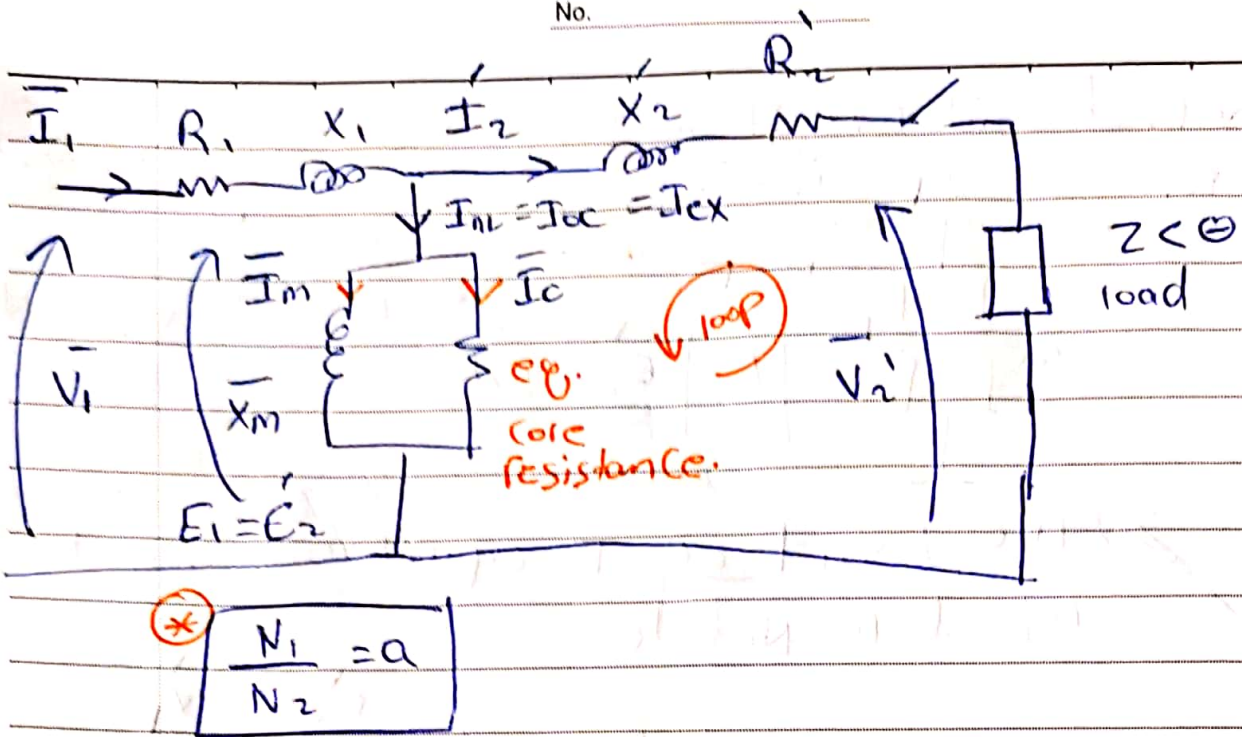 No.
I̅₁ R₁ X₁ I₂' X₂' R₂'
Iₘ = Ioc = Iex
I̅ₘ I̅c
Z<Θ
load
loop
V̅₁ X̅ₘ eq. V̅₂'
core
resistance.
E₁=E₂'
* N₁/N₂ = a